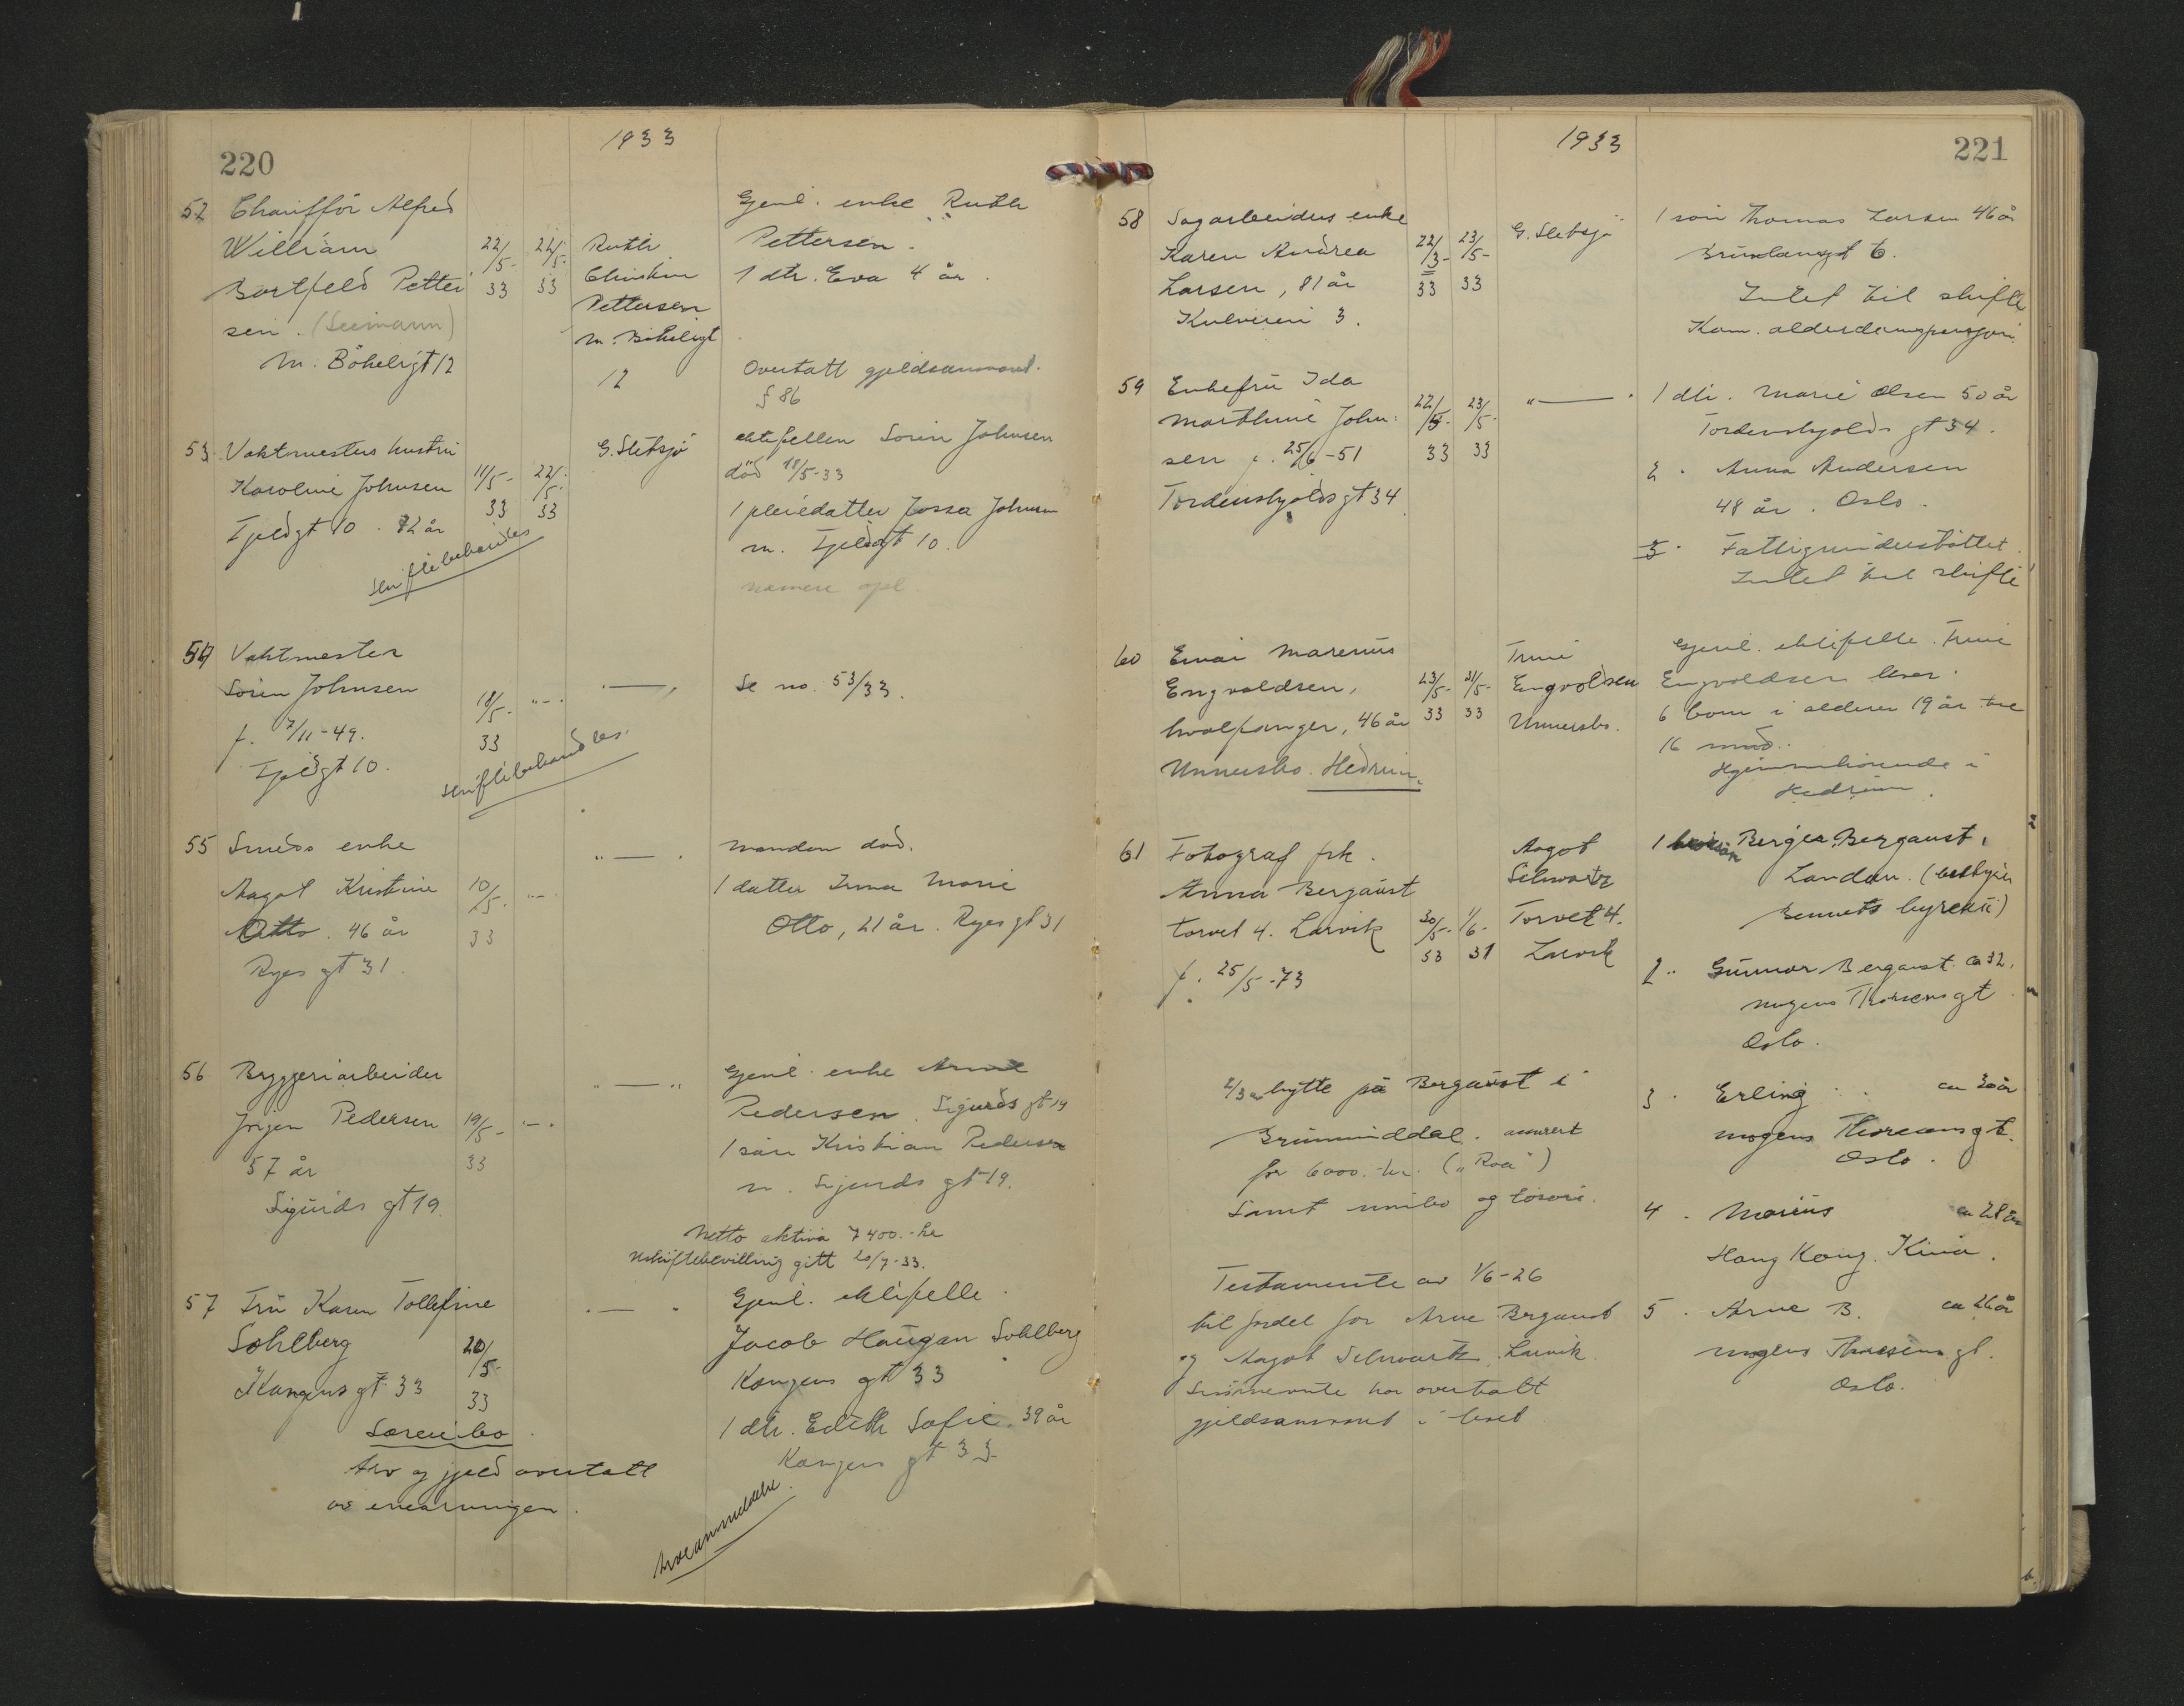 220
1933
52 Chauffør Alfred
William
Bortfeld Petter
sen. (Seemann)
M. Bøkeligt 12
22/5- 33
22/5- 33
Ruth
Christine
Pettersen
m. Bøkeligt
12
Gjenl. enke Ruth
Pettersen.
1 dtr. Eva 4 år.
Overtatt gjeldsansvaret.
§ 86
53 Vaktmesters hustru
Karoline Johnsen
Fjeldgt 10. 82 år
Skiftebehandles
11/5- 33
22/5- 33
G. Sletsjø
ektefellen Sørin Johnsen
død 18/5-33
1 pleiedatter Jossa Johnsen
m. Fjeldgt 10.
nærmere opl.
54 Vaktmester
Sørin Johnsen
f. 7/11-49.
Fjeldgt 10.
Skiftebehandles.
18/5- 33
" — "
" — "
Se no. 53/33.
55 Smeds enke
Aagot Kristine
Otto. 46 år
Ryes gt 31.
10/5- 33
" — "
" — "
manden død.
1 datter Inna Marie
Otto, 21 år. Ryes gt 31
56 Bryggeriarbeider
Jørgen Pedersen
57 år
Sigurds gt 19.
19/5- 33
" — "
" — "
Gjenl. enke
Pedersen. Sigurds gt 19
1 søn Kristian Pedersen
m. Sigurds gt 19.
Netto aktiva 7400.- kr
Uskiftebevilling gitt 20/7-33.
57 Fru Karen Tollefine
Sohlberg
Kongens gt 33
20/5- 33
" — "
Særeibo.
Arv og gjeld overtatt
av enearvingen.
Gjenl. ektefelle.
Jacob Haugan Sohlberg
Kongens gt 33
1 dtr. Edith Sofie. 39 år
Kongens gt 33.
Arveanmeldelse.
1933
221
58 Sagarbeiders enke
Karen Andrea
Larsen, 81 år
Kulveien 3.
22/3- 33
23/5- 33
G. Sletsjø
1 søn Thomas Larsen 46 år
Brunlanesgt 6.
Intet til skifte
Kom. alderdomspensjon.
59 Enkefru Ida
Marthine John-
sen f. 25/6-51
Tordenskjolds gt 34
22/5- 33
23/5- 33
" — "
1 dtr. Marie Olsen 50 år
Tordenskjolds gt 34.
2 " Anna Andersen
48 år. Oslo.
3 " Fattigunderstøttet.
Intet til skifte
60 Einar Marenius
Engvoldsen,
hvalfanger, 46 år
Unnersbo. Hedrum.
23/5- 33
31/5- 33
Trine
Engvoldsen
Unnersbo.
Gjenl. ektefelle Trine
Engvoldsen lever.
6 barn i alderen 19 år til
16 mnd.
Hjemmehørende i
Hedrum.
61 Fotograf frk.
Anna Bergaust
Torvet 4. Larvik
f. 25/5-73
30/5- 33
1/6- 31
Aagot
Schwartz
Torvet 4.
Larvik
1 Berger Bergaust,
London. (bestyrer
Bennets byreau)
2 " Gunnar Bergaust. ca 32.
Mogens Thorsens gt
Oslo.
3 " Erling " ca 30 år
Mogens Thorsens gt.
Oslo.
4 " Marius ca 28 år
Hong Kong. Kina.
5 " Arne B. ca 26 år
Mogens Thorsens gt.
Oslo.
2/3 av hytte på Bergaust i
Brunnviddal. assurert
for 6000.- kr. ("Roa")
Samt innbo og løsøre.
Testamente av 1/6-26
til fordel for Arne Bergaust
og Aagot Schwartz Larvik.
Sistnevnte har overtatt
gjeldsansvaret i boet